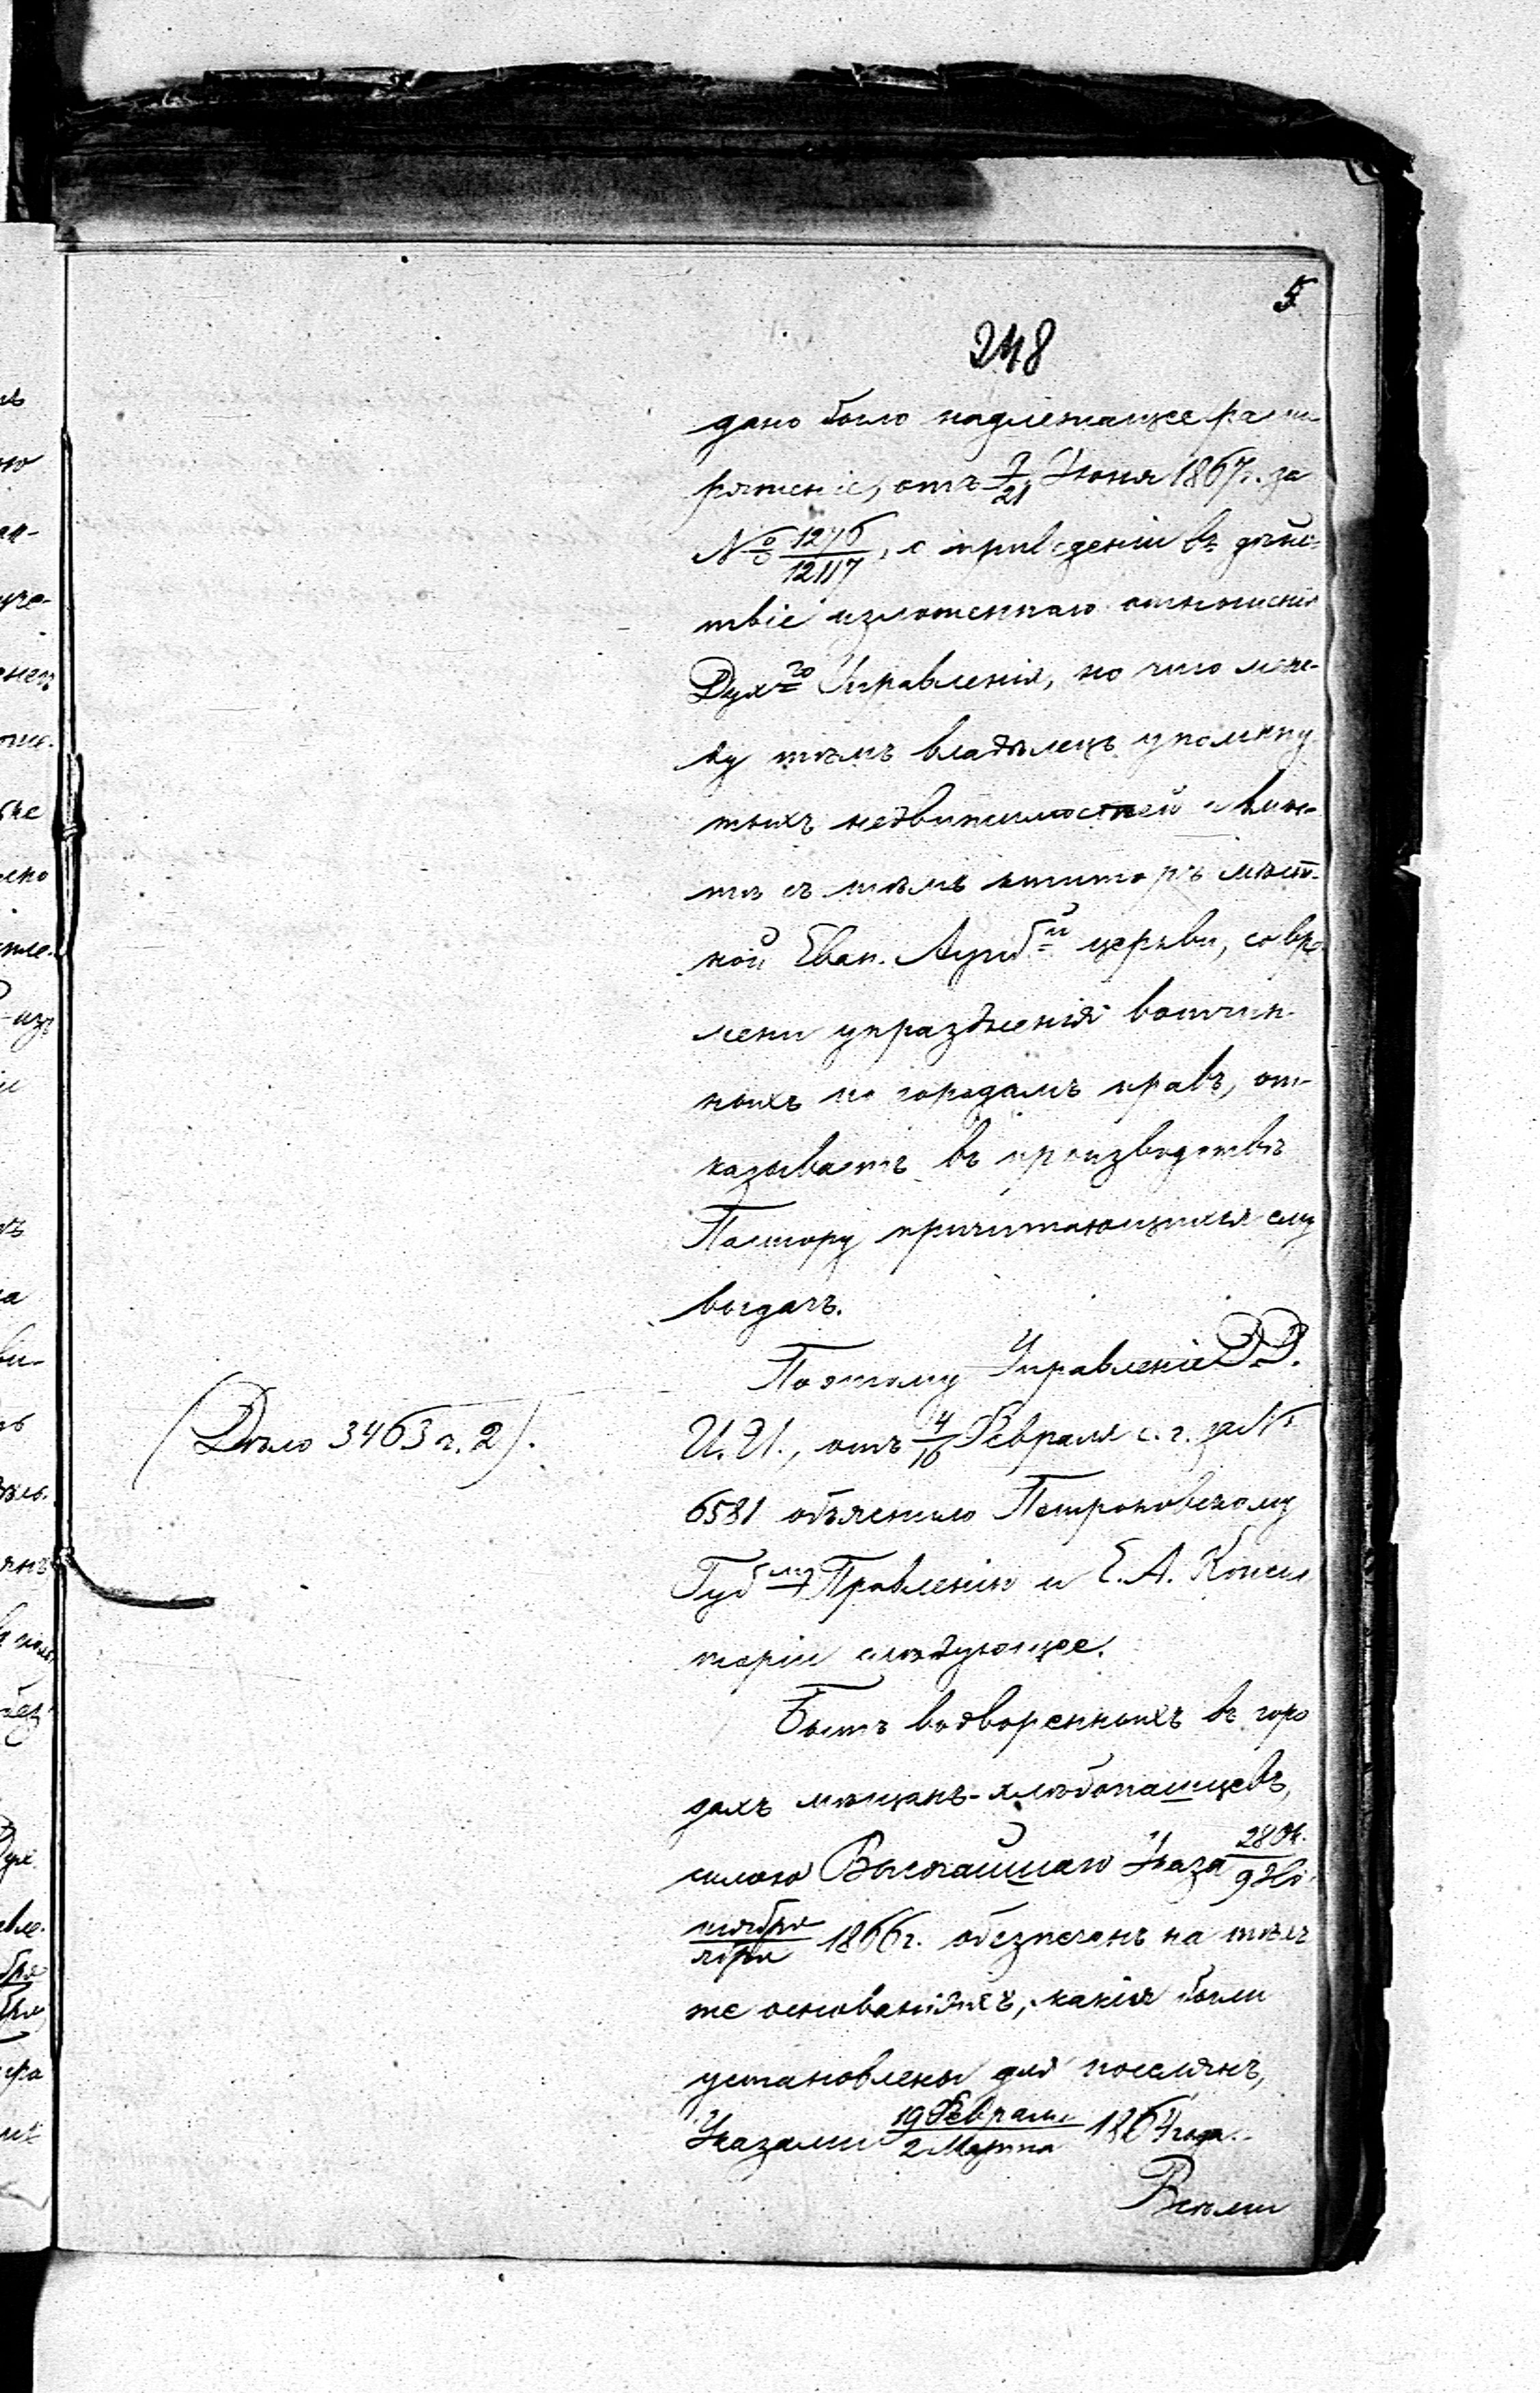 5
248
дано было надлежащее распо
ряженіе, отъ 9/21 Іюня 1867г. за
№ 1276/12117, о приведеніи въ дѣйс-
твіе изложеннаго отношенія
Дух го Управленія, но что меж-
ду тѣмъ владѣлецъ упомяну
тыхъ недвижимостей и вмѣс-
тѣ съ тѣмъ ктиторъ мѣст-
ной Еван. Аугсб й церкви, со вре
мени упраздненія вотчин-
ныхъ по городамъ правъ, от-
казываетъ въ производствѣ
Пастору причитающихся ему
выдачъ.
Поэтому Управленіе Д.Д.
И. И., отъ 4/16 Февраля с. г. за №
(Дѣло 3463 ч. 2).
6581 объяснило Петроковскому
Губ му Правленію и Е. А. Консис
торіи слѣдующее.
Бытъ водворенныхъ въ горо
дахъ мѣщанъ-хлѣбопашцевъ,
силою Высочайшаго Указа 28 Ок/9 Но
тября/ября 1866 г. обезпеченъ на тѣхъ
же основаніяхъ, какія были
установлены для поселянъ,
Указами 19 Февраля/2 Марта 1864 года.
Всѣми